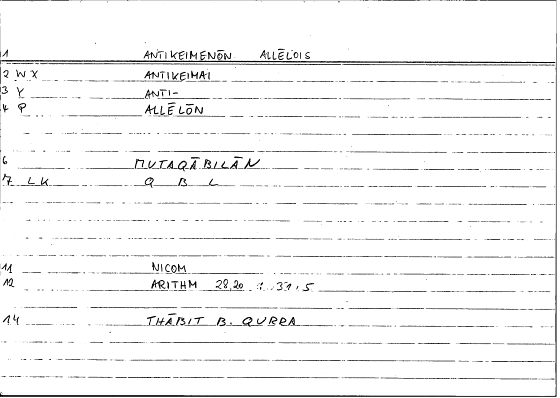 1 ANTIKEIMENŌN ALLĒLOIS
2 WX ANTIKEIMAI
3 Y ANTI-
4 P ALLĒLŌN
6 MUTAQĀBILĀN
7 LK Q B L
11 NICOM
12 ARITHM 28,20 : 31,5
14 THĀBIT B. QURRA